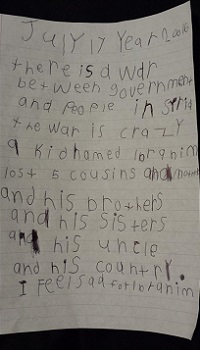 July 17 Year 2016
there is a war
between government
and people in Siria
the war is crazy
a kid named Ibranim
lost 5 cousins and mother
and his brothers
and his sisters
and his uncle
and his country.
I feel sad for Ibranim